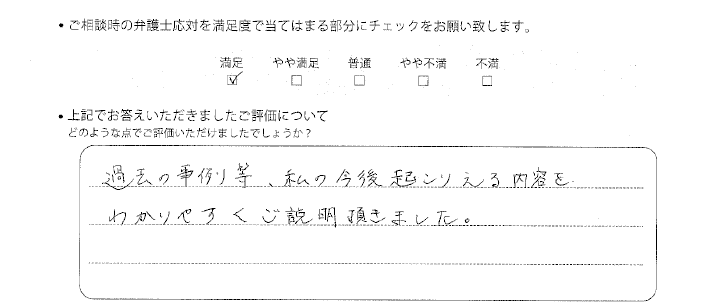 ・ご相談時の弁護士応対を満足度で当てはまる部分にチェックをお願い致します。
満足 やや満足 普通 やや不満 不満
☑ □ □ □ □
・上記でお答えいただきましたご評価について
どのような点でご評価いただけましたでしょうか？
過去の事例等、私の今後起こりえる内容を
わかりやすくご説明頂きました。